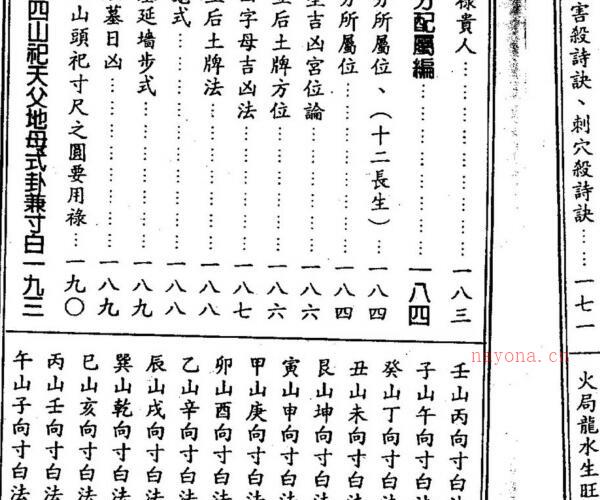 害殺詩訣、刺穴殺詩訣……一七一
火局龍水生旺
祿貴人……一八三
分配屬編……一八四
分所屬位、(十二長生)…一八四
分所屬位……一八四
生吉凶宮位論……一八六
后土牌方位……一八六
字母吉凶法……一八七
后土牌法……一八八
式……一八八
延墻步式……一八九
墓日凶……一八九
山頭祀寸尺之圓要用祿…一九〇
四山祀天父地母式卦兼寸白一九三
壬山丙向寸白法
子山午向寸白法
癸山丁向寸白法
丑山未向寸白法
艮山坤向寸白法
寅山申向寸白法
甲山庚向寸白法
卯山酉向寸白法
乙山辛向寸白法
辰山戌向寸白法
巽山乾向寸白法
巳山亥向寸白法
丙山壬向寸白法
午山子向寸白法
nayona.cn